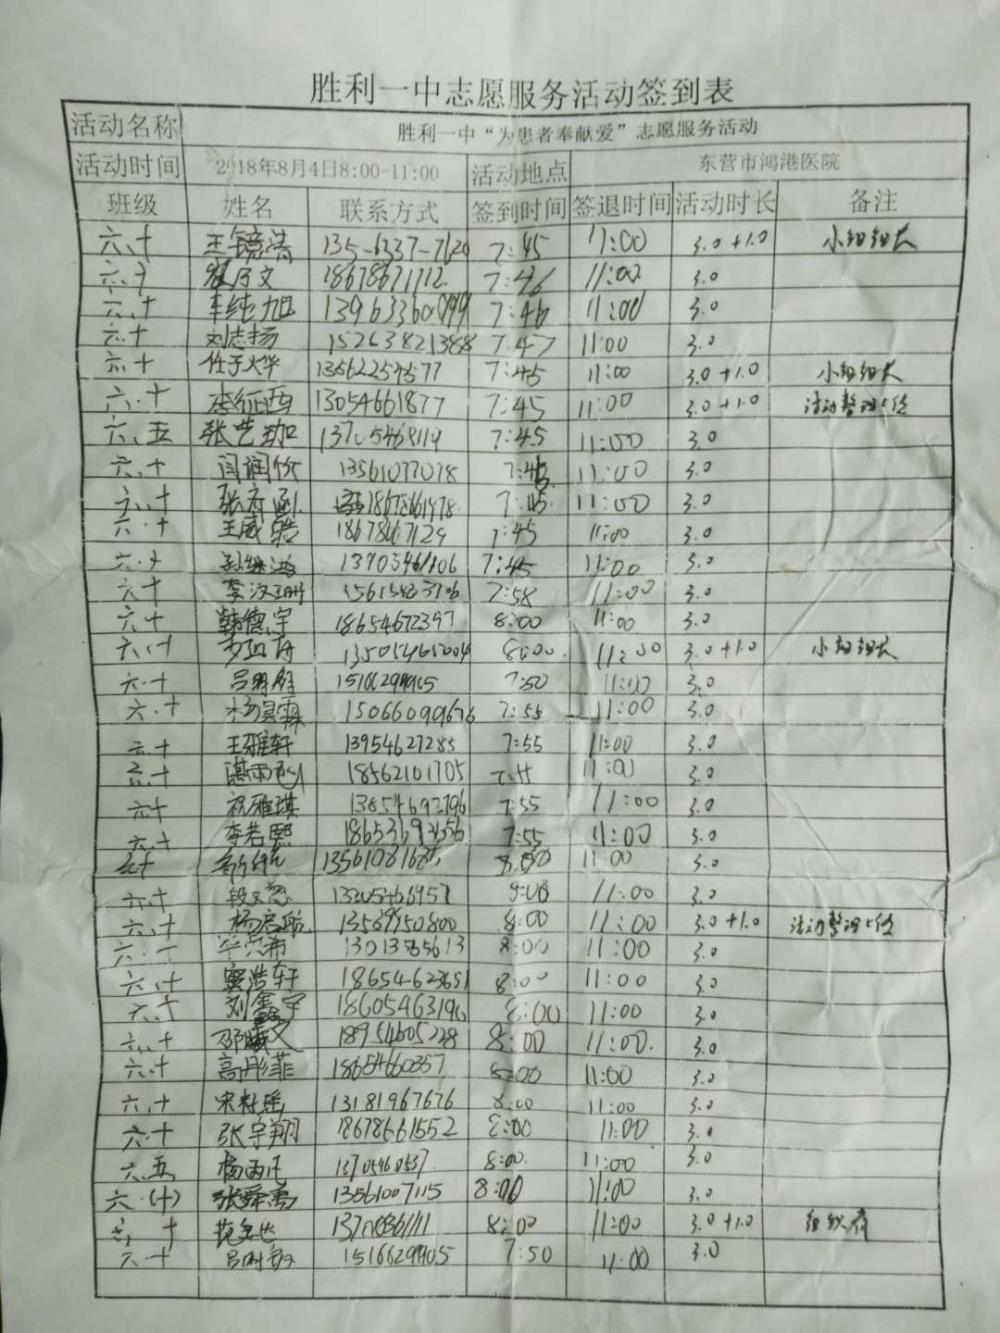 胜利一中志愿服务活动签到表
活动名称 胜利一中“为患者奉献爱”志愿服务活动
活动时间 2018年8月4日8:00-11:00 活动地点 东营市鸿港医院
班级 姓名 联系方式 签到时间 签退时间 活动时长 备注
六.十 王镜涛 135-6337-7120 7:45 11:00 3.0+1.0 小组组长
六.十 18678671112 7:46 11:00 3.0
六.十 车纯旭 7:46 11:00 3.0
六.十 刘志扬 15263821388 7:47 11:00 3.0
六.十 任子烨 13562259577 7:45 11:00 3.0+1.0 小组组长
六.十 李征西 13054661877 7:45 11:00 3.0+1.0 活动整理上传
六.五 张艺珈 13705468119 7:45 11:00 3.0
六.十 闫润竹 13561077078 7:45 11:00 3.0
六.十 张卉函 18678661978 7:45 11:00 3.0
六.十 王威皓 18678467129 7:45 11:00 3.0
六.十 孙继鸿 13705461106 7:45 11:00 3.0
六十 李汶珊 7:58 11:00 3.0
六十 韩德宇 18654672397 8:00 11:00 3.0
六.十 13505465004 8:00 11:00 3.0+1.0 小组组长
六.十 7:50 11:00 3.0
六.十 杨昊霖 15066090676 7:55 11:00 3.0
六.十 王雅轩 13954627285 7:55 11:00 3.0
六.十 18562101705 11:00 3.0
六十 祝雅琪 13854692796 7:55 11:00 3.0
六.十 李若熙 7:55 11:00 3.0
六十 8:00 11:00 3.0
六.十 13305466957 8:00 11:00 3.0
六.十 杨启航 13589950800 8:00 11:00 3.0+1.0 活动整理上传
六.十 8:00 11:00 3.0
六.十 窦浩轩 18654623651 8:00 11:00 3.0
六.十 刘鑫宇 18605463196 8:00 11:00 3.0
六.十 18954605228 8:00 11:00 3.0
六.十 高彤菲 18654660357 8:00 11:00 3.0
六.十 宋梓瑶 13181967676 8:00 11:00 3.0
六.十 张宇翔 18678661552 8:00 11:00 3.0
六.五 8:00 11:00 3.0
六.(十) 张舜尧 13561007115 8:00 11:00 3.0
六.十 8:00 11:00 3.0+1.0
六.十 15166299905 7:50 11:00 3.0